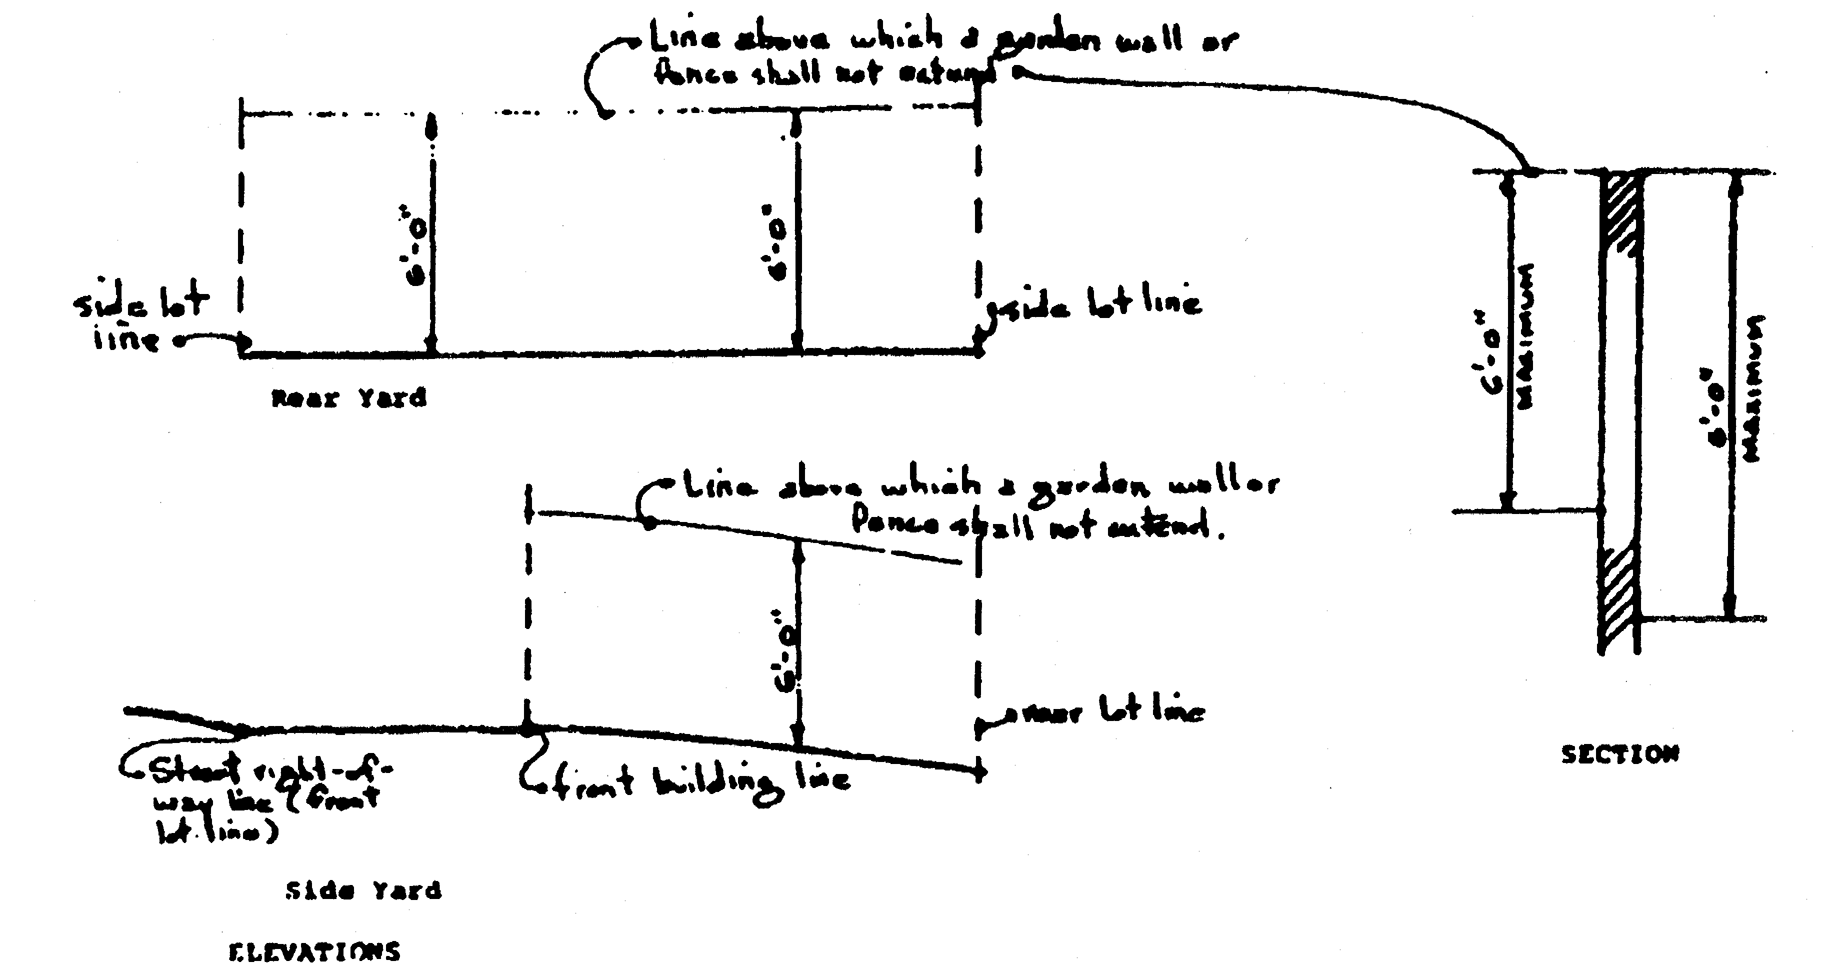 Line above which a garden wall or
fence shall not extend
6'-0"
6'-0"
side lot
line
side lot line
Rear Yard
6'-0"
MAXIMUM
6'-0"
MAXIMUM
Line above which a garden wall or
fence shall not extend.
6'-0"
rear lot line
Street right-of-
way line (front
lot line)
front building line
SECTION
Side Yard
ELEVATIONS